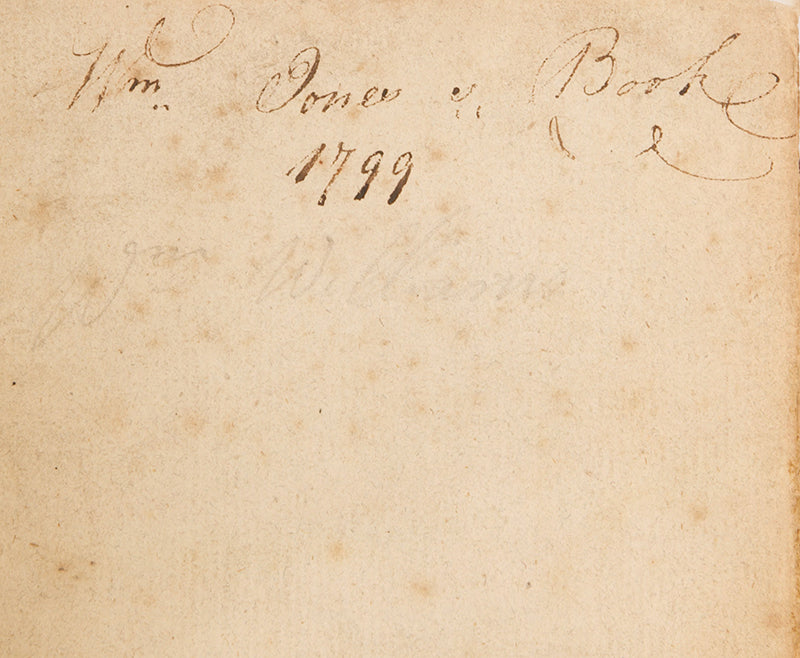 Wm. Jones's Book
1799
Wm Williams